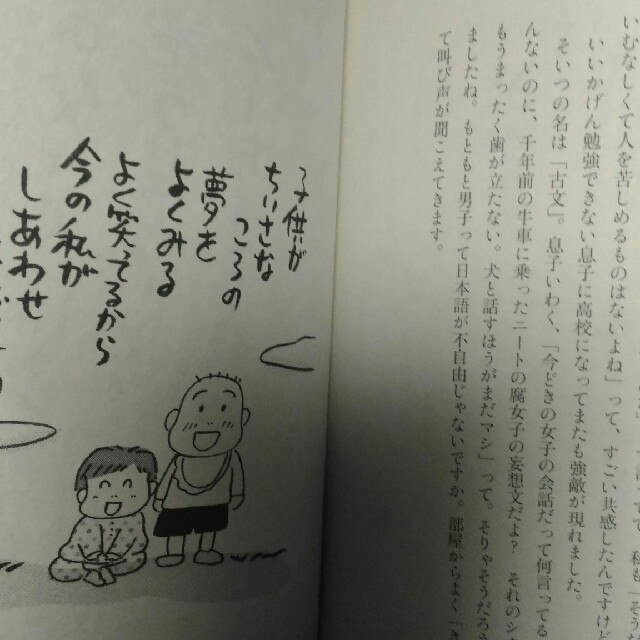 いむなしくて人を苦しめるものはないよね」って、すごい共感したんですけど
いいかげん勉強できない息子に高校になってまたも強敵が現れました。
そいつの名は「古文」。息子いわく、「今どきの女子の会話だって何言って
んないのに、千年前の牛車に乗ったニートの腐女子の妄想文だよ？ それのど
もうまったく歯が立たない。犬と話すほうがまだマシ」って。そりゃそうだろ
ましたね。もともと男子って日本語が不自由じゃないですか。部屋からよく「
て叫び声が聞こえてきます。
子供が
ちいさな
ころの
夢を
よくみる
よく笑ってるから
今の私が
しあわせ